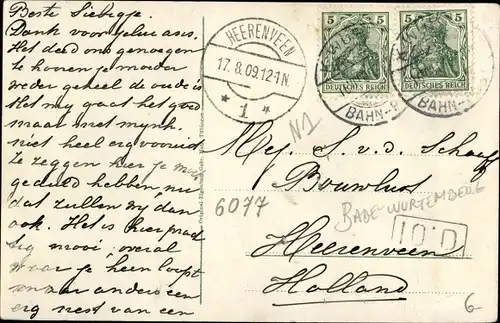 Beste Siebigje
Dank voor jelui a.s.
Het deed ons genoegen
te hooren je moeder
weder geheel de oude is
Het my gaat het goed
maar met mynh.
niet heel erg vooruit
Te zeggen hier je m
geduld hebben nu
dat zullen wy dan
ook. Het is hier prach
tig mooi, overal
waar je heen loopt
anders een
erg nest van een
HEERENVEEN
17.8.09.12-1N.
* 1 *
5 5 5 5
DEUTSCHES REICH DEUTSCHES REICH
BAHN- BAHN-
N1
Mej. S. v. d. Schaaf
Bouwlust
6077
BADE WURTEMBERG
Heerenveen
Holland
6-